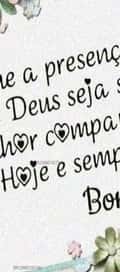 ue a presenç
Deus seja s
hor compa
Hoje e semp
Bo